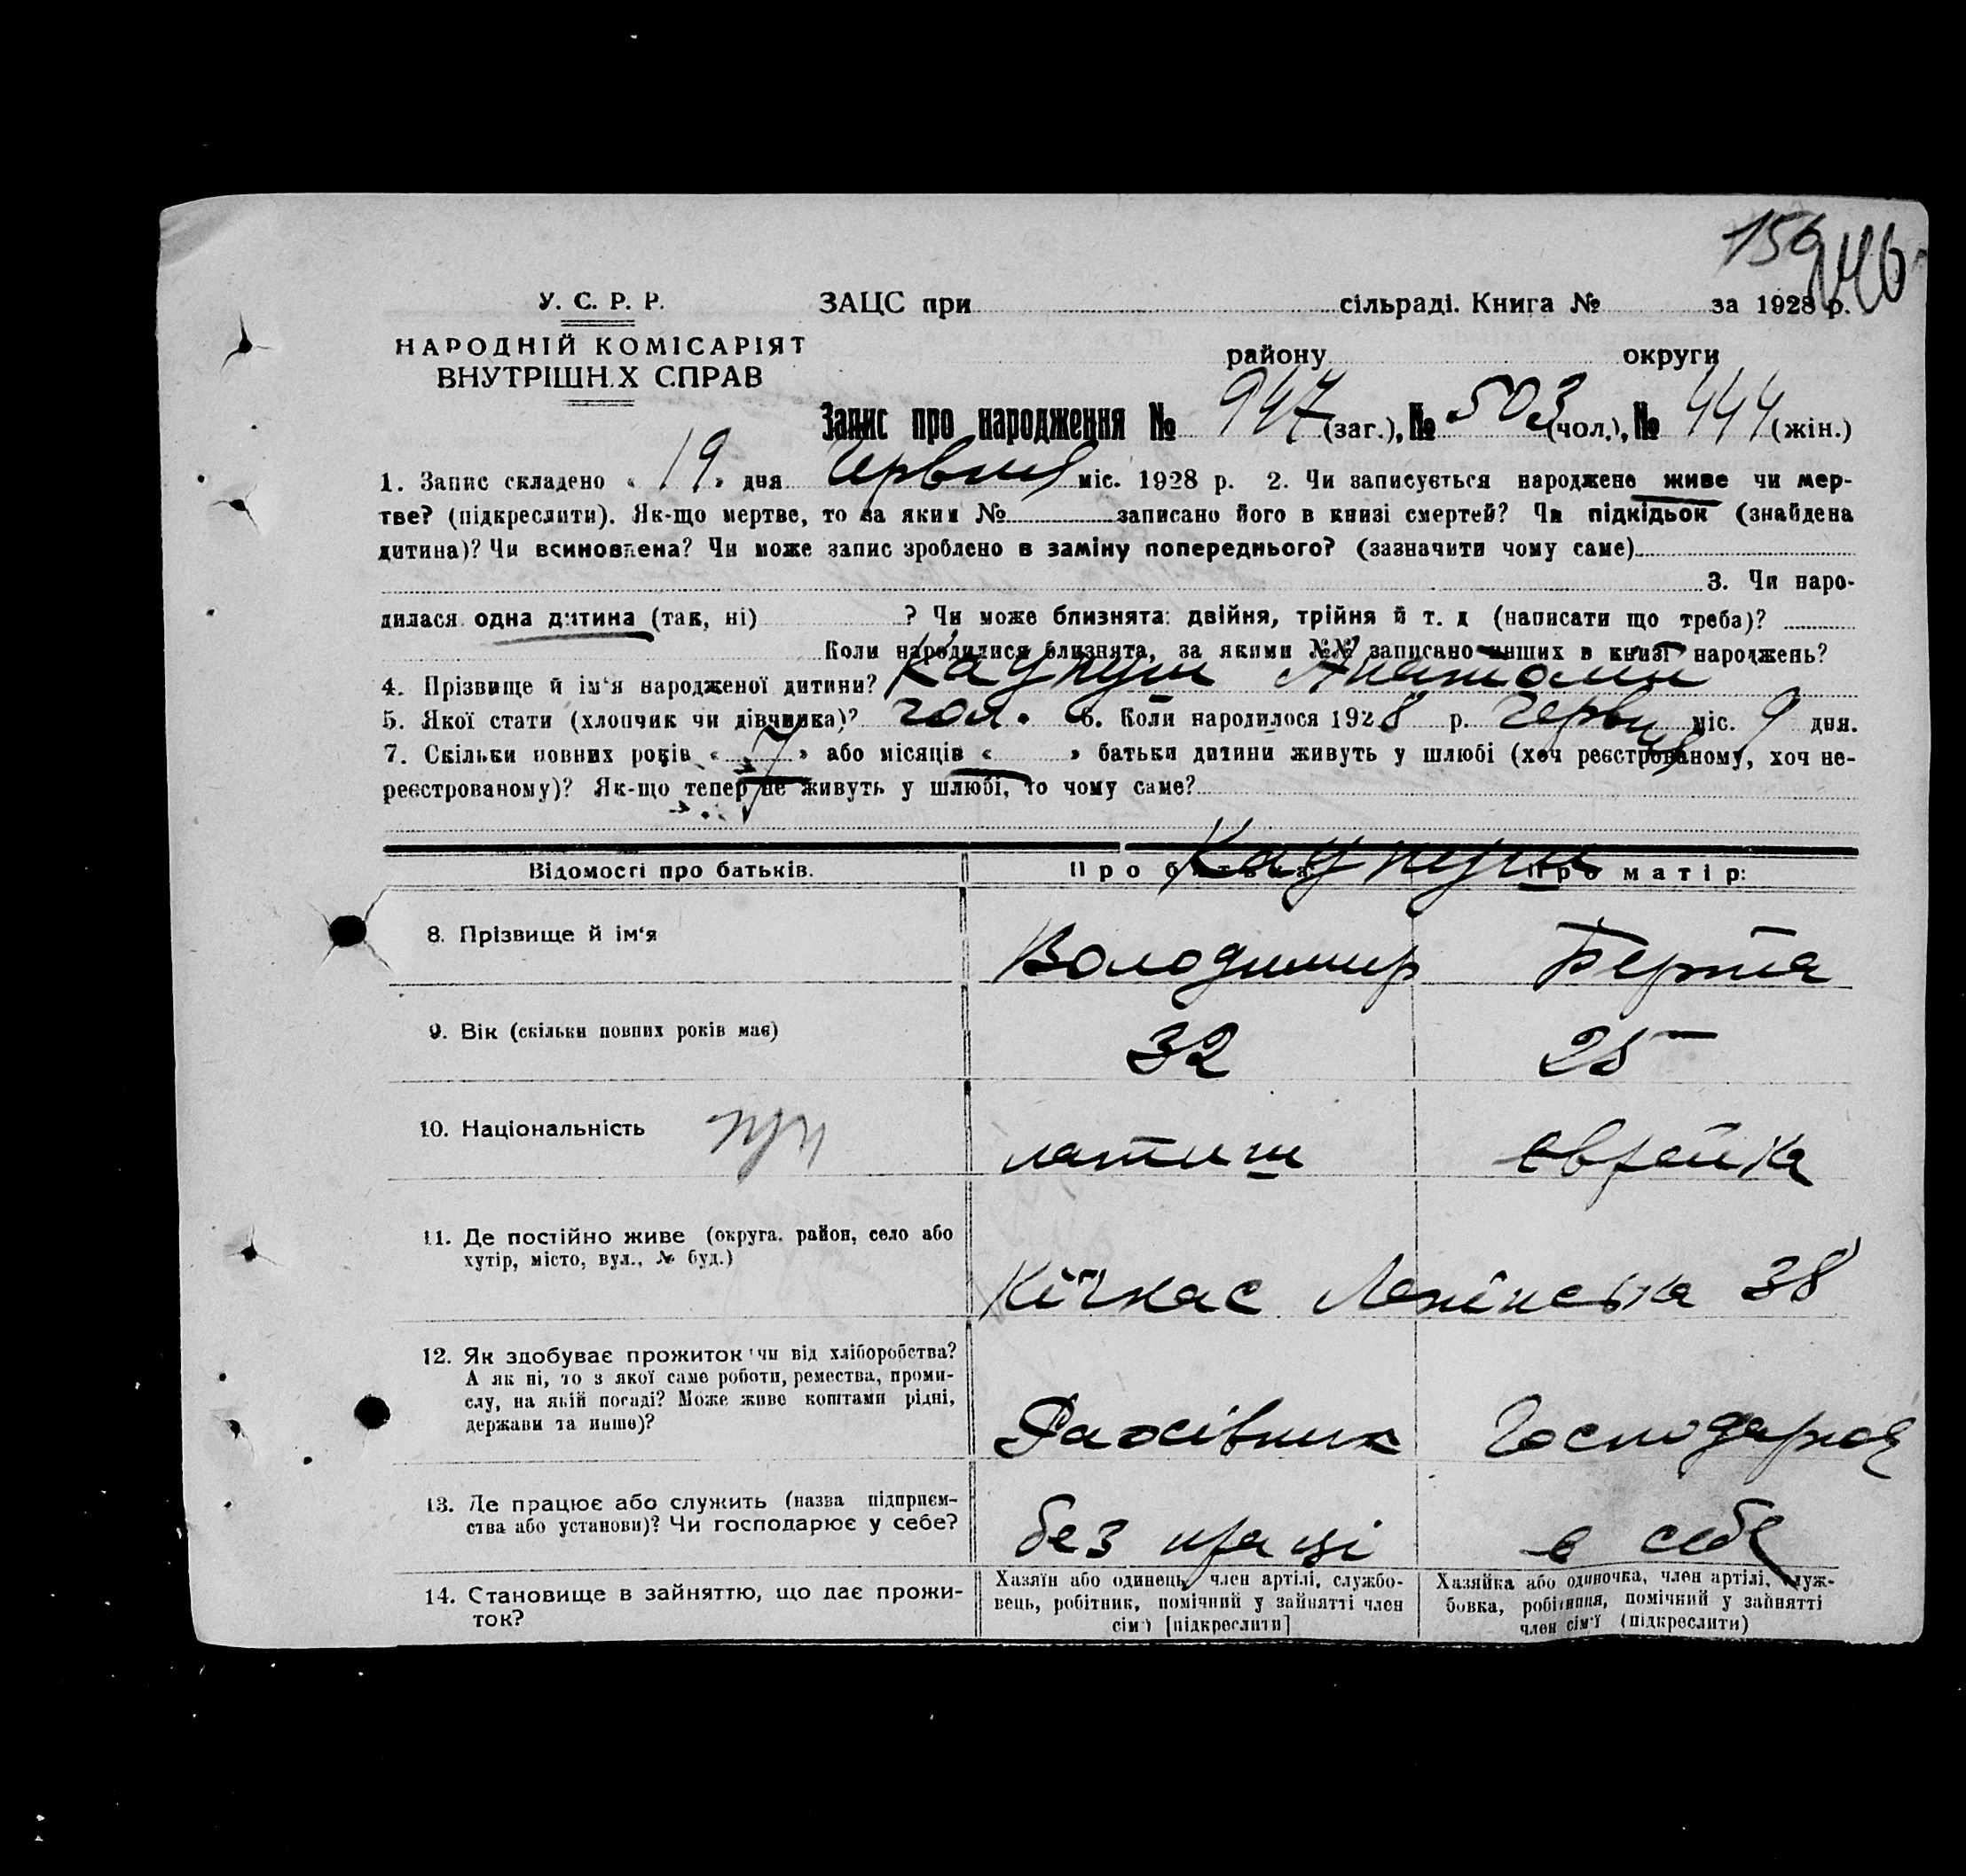 246
У. С. Р. Р.
НАРОДНІЙ КОМІСАРІЯТ
ВНУТРІШН.Х СПРАВ
ЗАЦС при сільраді. Книга № за 1928 р.
району округи
Запис про народження № 947 (заг.), № 503 (чол.), № 444 (жін.)
1. Запис складено « 19 » дня Червня міс. 1928 р. 2. Чи записується народжене живе чи мер-
тве? (підкреслити). Як-що мертве, то за яким № записано його в книзі смертей? Чи підкідьок (знайдена
дитина)? Чи всиновлена? Чи може запис зроблено в заміну попереднього? (зазначити чому саме)
3. Чи наро-
дилася одна дитина (так, ні) ? Чи може близнята: двійня, трійня й т. д (написати що треба)?
Коли народилися близнята, за якими №№ записано инших в книзі народжень?
4. Прізвище й ім‘я народженої дитини? Каупуш Анатолий
5. Якої стати (хлопчик чи дівчинка)? чол. 6. Коли народилося 1928 р. Червня міс. 9 дня.
7. Скільки повних років « 7 » або місяців « » батьки дитини живуть у шлюбі (хоч реєстрованому, хоч не-
реєстрованому)? Як-що тепер не живуть у шлюбі, то чому саме?
Каупуш
Відомості про батьків. Про батька Про матір:
8. Прізвище й ім‘я Володимир Берта
9. Вік (скільки повних років має) 32 25
10. Національність латиш єврейка
11. Де постійно живе (округа, район, село або
хутір, місто, вул., № буд.) Кічкас Ленінська 38
12. Як здобуває прожиток чи від хліборобства?
А як ні, то з якої саме роботи, ремества, проми-
слу, на якій посаді? Може живе коштами рідні,
держави та инше)? Фахівник Господарює
13. Де працює або служить (назва підприєм-
ства або установи)? Чи господарює у себе? без праці в себе
14. Становище в зайняттю, що дає прожи-
ток?
Хазяїн або одинець, член артілі, службо-
вець, робітник, помічний у зайнятті член
сім‘ї [підкреслити]
Хазяйка або одиночка, член артілі, служ-
бовка, робітниця, помічний у зайнятті
член сім‘ї (підкреслити)